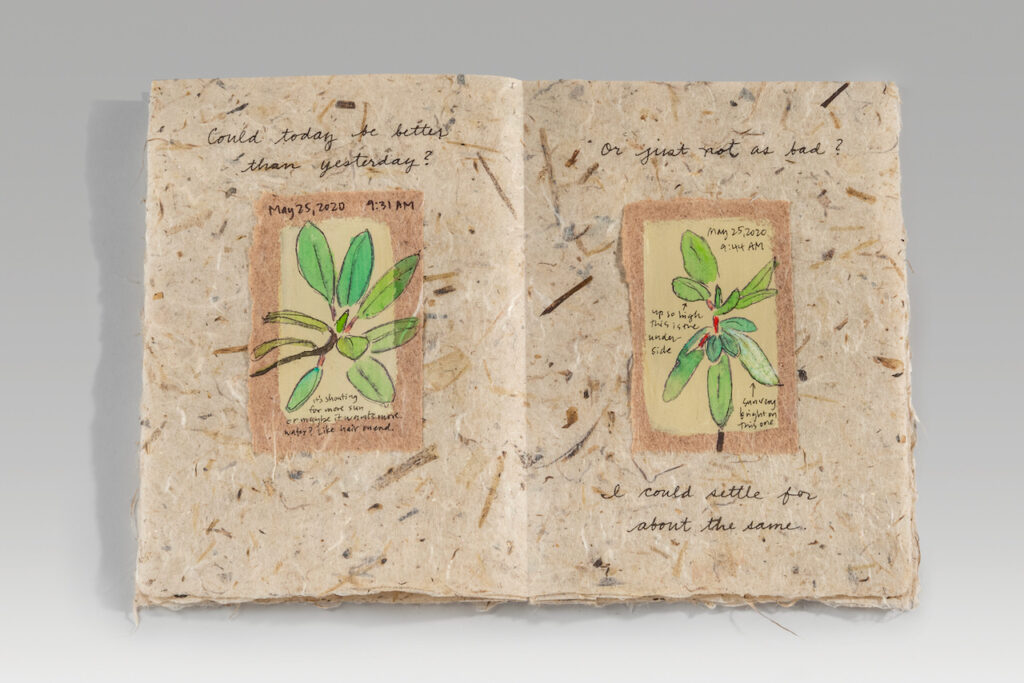 Could today be better
than yesterday?
May 25, 2020 9:31 AM
it's shouting
for more sun
or maybe it wants more
water? Like hair on end.
Or just not as bad?
May 25, 2020
9:44 AM
up so high
this is one
under
side
sun very
bright on
this one
I could settle for
about the same.